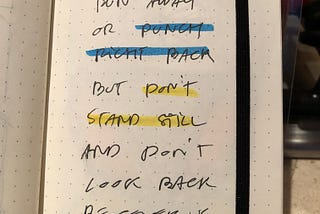 RUN AWAY
OR PUNCH
RIGHT BACK
BUT DON'T
STAND STILL
AND DON'T
LOOK BACK